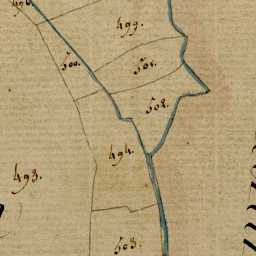 498.
499.
500.
501.
502.
494.
493.
503.